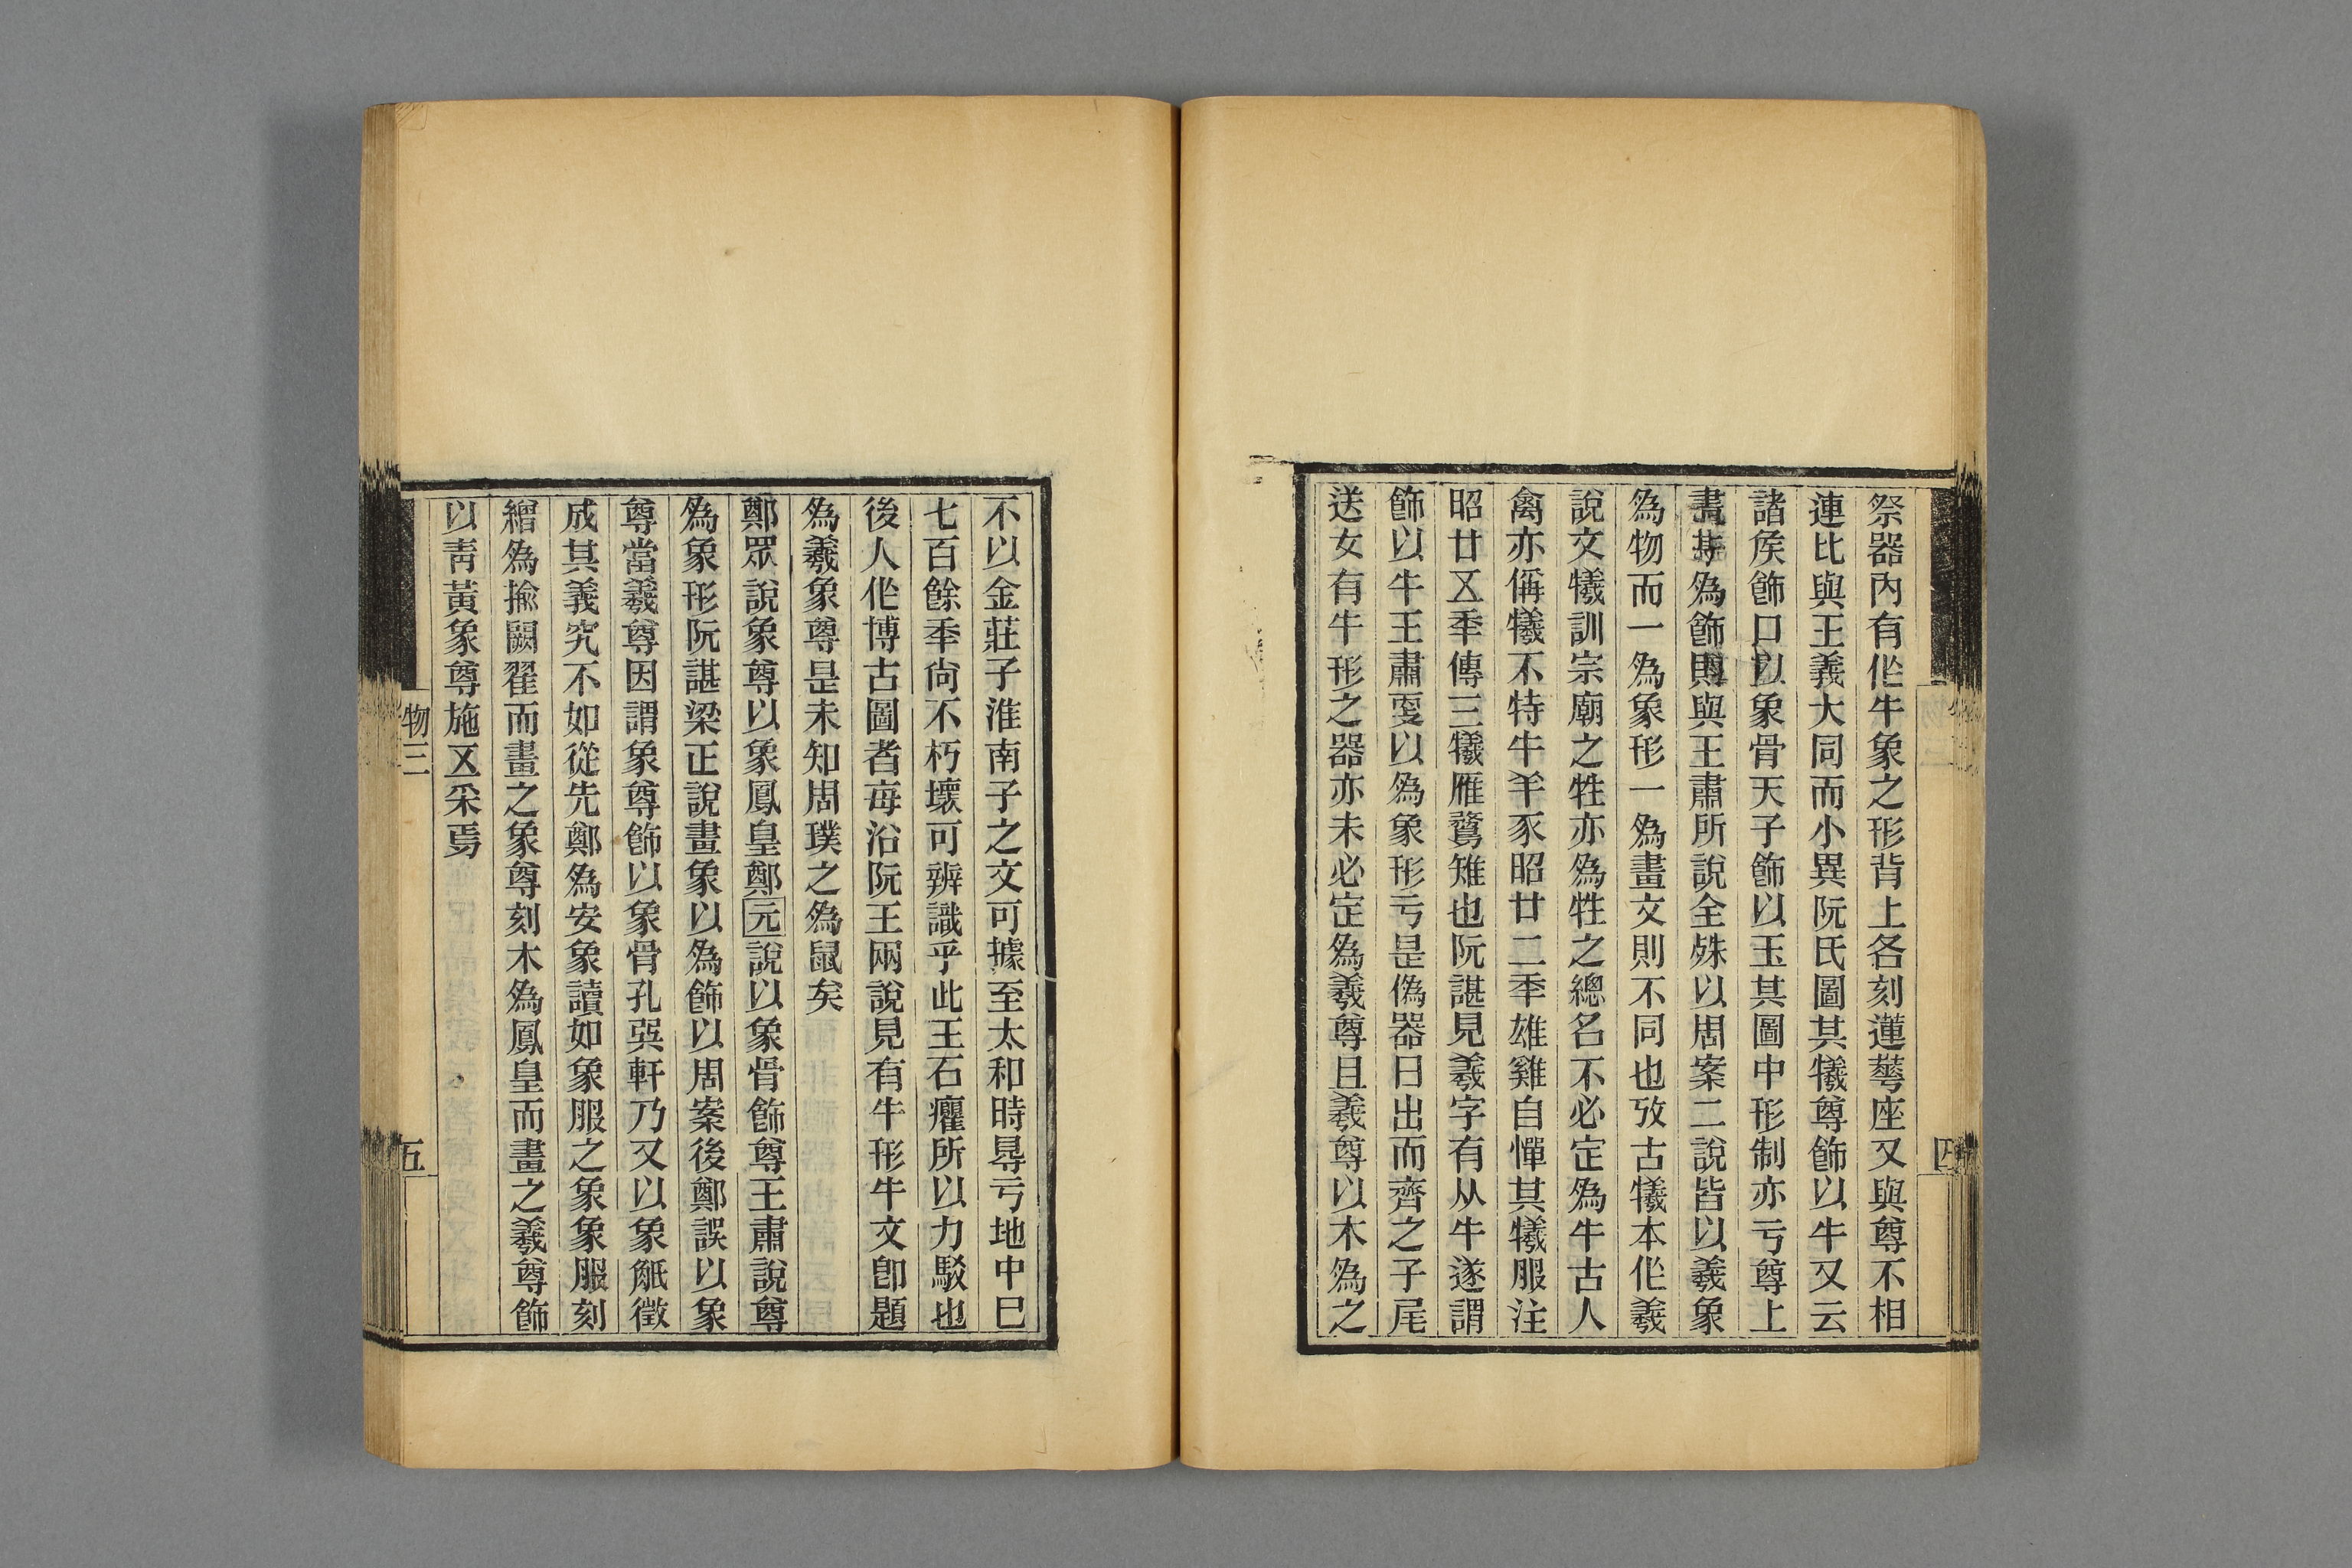 祭器內有㐲牛象之形背上各刻蓮蕚座又與尊不相
連比與王義大同而小異阮氏圖其犧尊飾以牛又云
諸矦飾口以象骨天子飾以玉其圖中形制亦亏尊上
畫爲飾則與王肅所說全殊以周案二說皆以羲象
爲物而一爲象形一爲畫文則不同也攷古犧本㐲羲
說文犧訓宗廟之牲亦爲牲之總名不必定爲牛古人
禽亦偁犧不特牛羊豕昭廿二秊雄雞自憚其犧服注
昭廿㐅秊傳三犧雁鶩雉也阮諶見羲字有从牛遂謂
飾以牛王肅叓以爲象形亏是僞器日出而齊之子尾
送女有牛形之器亦未必定爲羲尊且羲尊以木爲之
四
不以金莊子淮南子之文可據至太和時㝵亏地中巳
七百餘秊尙不朽壞可辨識乎此王石癯所以力駁也
後人㐲博古圖者每沿阮王兩說見有牛形牛文卽題
爲羲象尊是未知周璞之爲鼠矣
鄭眾說象尊以象鳳皇鄭元說以象骨飾尊王肅說尊
爲象形阮諶梁正說畫象以爲飾以周案後鄭誤以象
尊當羲尊因謂象尊飾以象骨孔㢲軒乃又以象觝徵
成其義究不如從先鄭爲安象讀如象服之象象服刻
繒爲揄闕翟而畫之象尊刻木爲鳳皇而畫之羲尊飾
以靑黃象尊施㐅采焉
物三
五